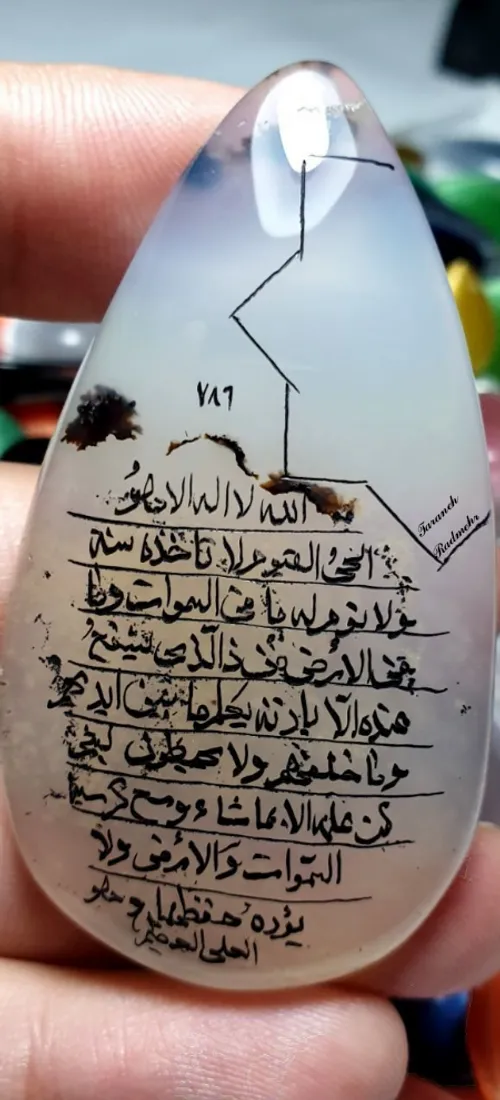 ٧٨٦
الله لا اله الا هو
الحیُ القیوم لا تاخذه سنه
ولا نوم له ما فی السموات وما
فی الارض من ذا الذی یشفعُ
عنده الّا باذنه یعلم ما بین ایدی
وما خلفهم ولا یحیطون بشی
من علمه الا بما شاء وسع کرسیه
السّموات وَالارض ولا
یؤده حفظهما و هو
العلی العظیم
Taraneh
Radmehr